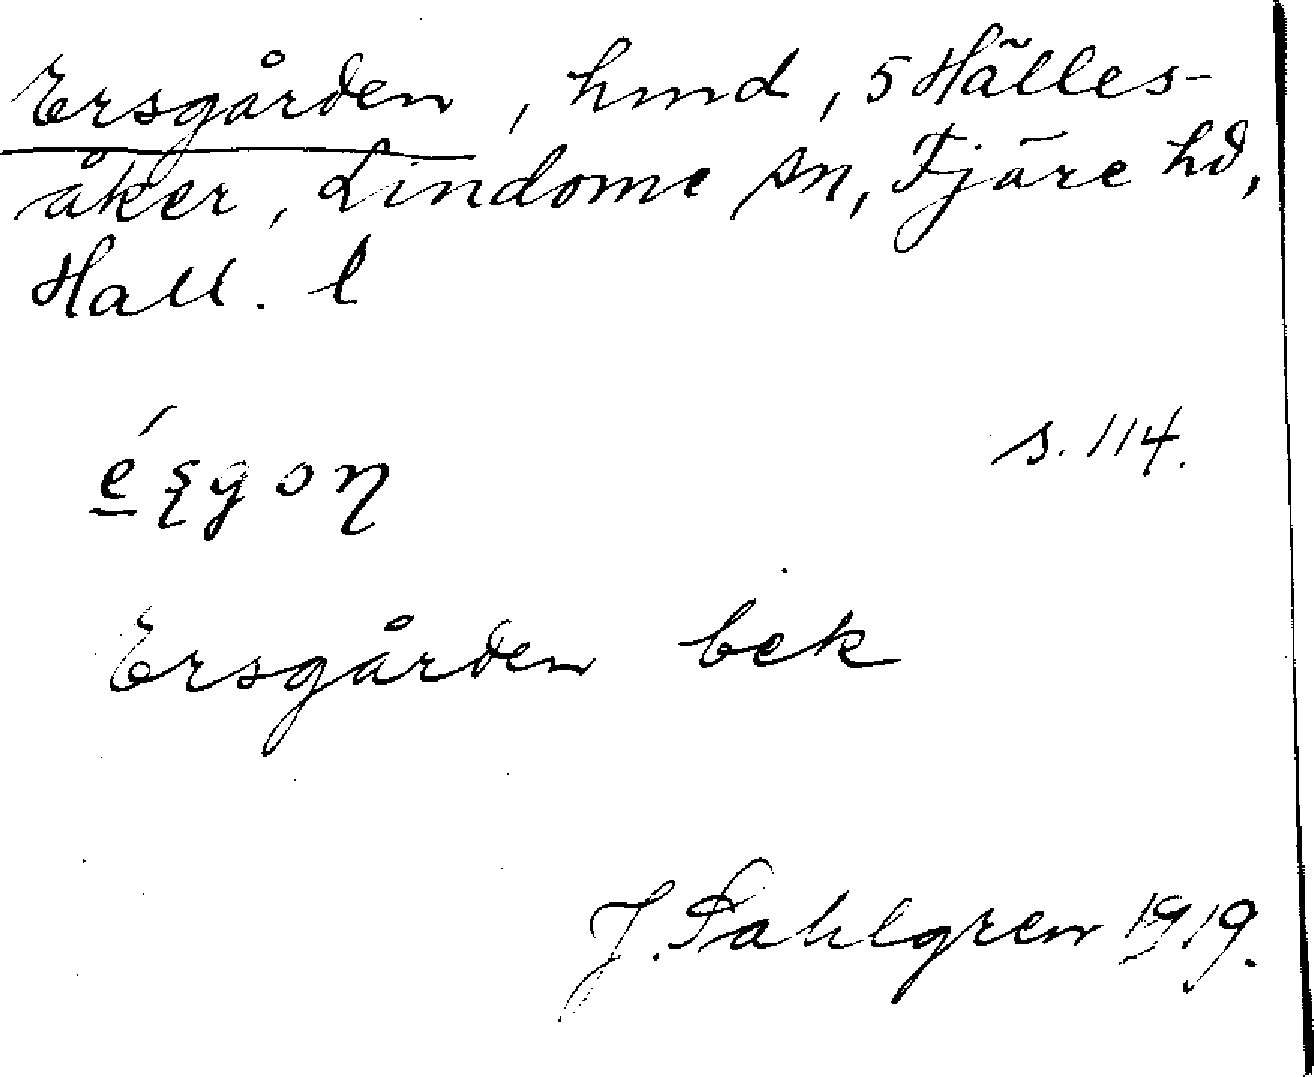 Ersgården, hmd, 5 Hälles-
åker, Lindome sn, Fjäre hd,
Hall. l
s. 114.
Ersgården bek
J. Sahlgren 1919.